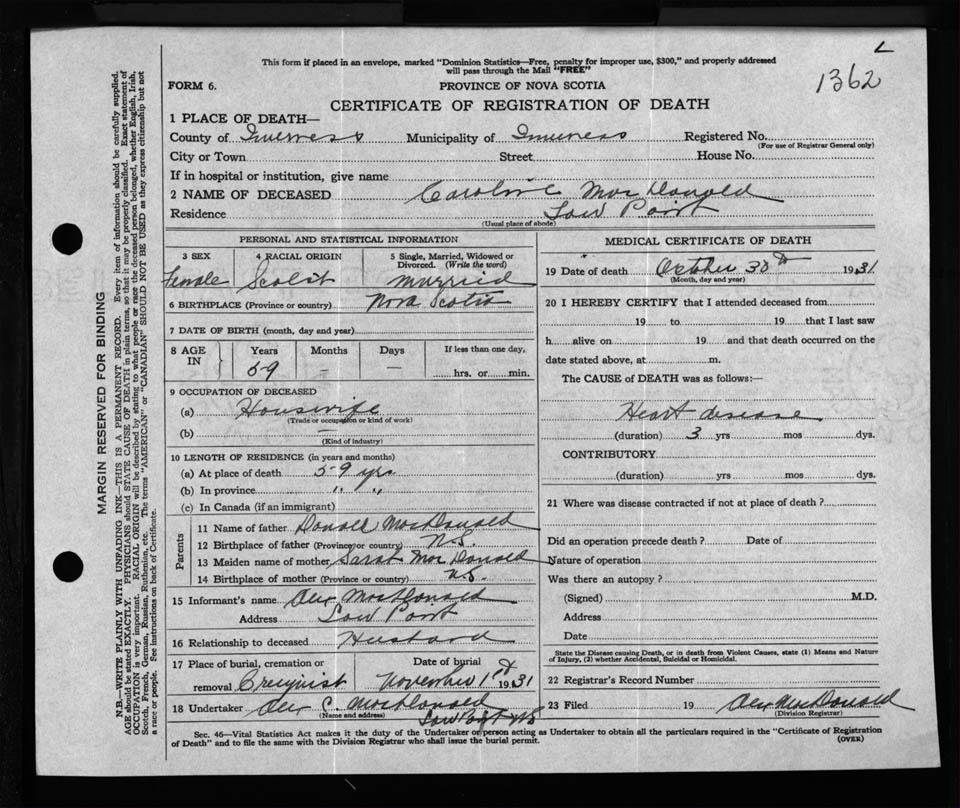 L
1362
This form if placed in an envelope, marked "Dominion Statistics—Free, penalty for improper use, $300," and properly addressed
will pass through the Mail "FREE"
FORM 6.
PROVINCE OF NOVA SCOTIA
CERTIFICATE OF REGISTRATION OF DEATH
1 PLACE OF DEATH—
County of Inverness Municipality of Inverness Registered No.
(For use of Registrar General only)
City or Town Street House No.
If in hospital or institution, give name
2 NAME OF DECEASED Caroline MacDonald
Residence Low Point
(Usual place of abode)
PERSONAL AND STATISTICAL INFORMATION
3 SEX 4 RACIAL ORIGIN 5 Single, Married, Widowed or
Divorced. (Write the word)
Female Scotch Married
6 BIRTHPLACE (Province or country) Nova Scotia
7 DATE OF BIRTH (month, day and year)
8 AGE IN Years Months Days If less than one day,
59 — — hrs. or min.
9 OCCUPATION OF DECEASED
(a) Housewife
(Trade or occupation or kind of work)
(b) —
(Kind of industry)
10 LENGTH OF RESIDENCE (in years and months)
(a) At place of death 59 yrs.
(b) In province " "
(c) In Canada (if an immigrant)
Parents
11 Name of father Donald MacDonald
12 Birthplace of father (Province or country) N.S.
13 Maiden name of mother Sarah MacDonald
14 Birthplace of mother (Province or country) N.S.
15 Informant's name Alex MacDonald
Address Low Point
16 Relationship to deceased Husband
17 Place of burial, cremation or Date of burial
removal Creignish November 1st 1931
18 Undertaker Alex C. MacDonald
(Name and address) Low Point NS
MEDICAL CERTIFICATE OF DEATH
19 Date of death October 30th 1931
(Month, day and year)
20 I HEREBY CERTIFY that I attended deceased from
19 to 19 that I last saw
h alive on 19 and that death occurred on the
date stated above, at m.
The CAUSE of DEATH was as follows:—
Heart disease
(duration) 3 yrs mos dys.
CONTRIBUTORY
(duration) yrs mos dys.
21 Where was disease contracted if not at place of death?
Did an operation precede death? Date of
Nature of operation
Was there an autopsy?
(Signed) M.D.
Address
Date
State the Disease causing Death, or in death from Violent Causes, state (1) Means and Nature
of Injury, (2) whether Accidental, Suicidal or Homicidal.
22 Registrar's Record Number
23 Filed 19 Alex MacDonald
(Division Registrar)
Sec. 46—Vital Statistics Act makes it the duty of the Undertaker or person acting as Undertaker to obtain all the particulars required in the "Certificate of Registration
of Death" and to file the same with the Division Registrar who shall issue the burial permit.
(OVER)
MARGIN RESERVED FOR BINDING
N.B.—WRITE PLAINLY WITH UNFADING INK—THIS IS A PERMANENT RECORD. Every item of information should be carefully supplied.
AGE should be stated EXACTLY. PHYSICIANS should STATE CAUSE OF DEATH in plain terms, so that it may be properly classified. Exact statement of
OCCUPATION is very important. RACIAL ORIGIN will be described by stating to what people or race the deceased person belonged, whether English, Irish,
Scotch, French, German, Russian, Ruthenian, etc. The terms "AMERICAN" or "CANADIAN" SHOULD NOT BE USED as they express citizenship but not
a race or people. See instructions on back of Certificate.